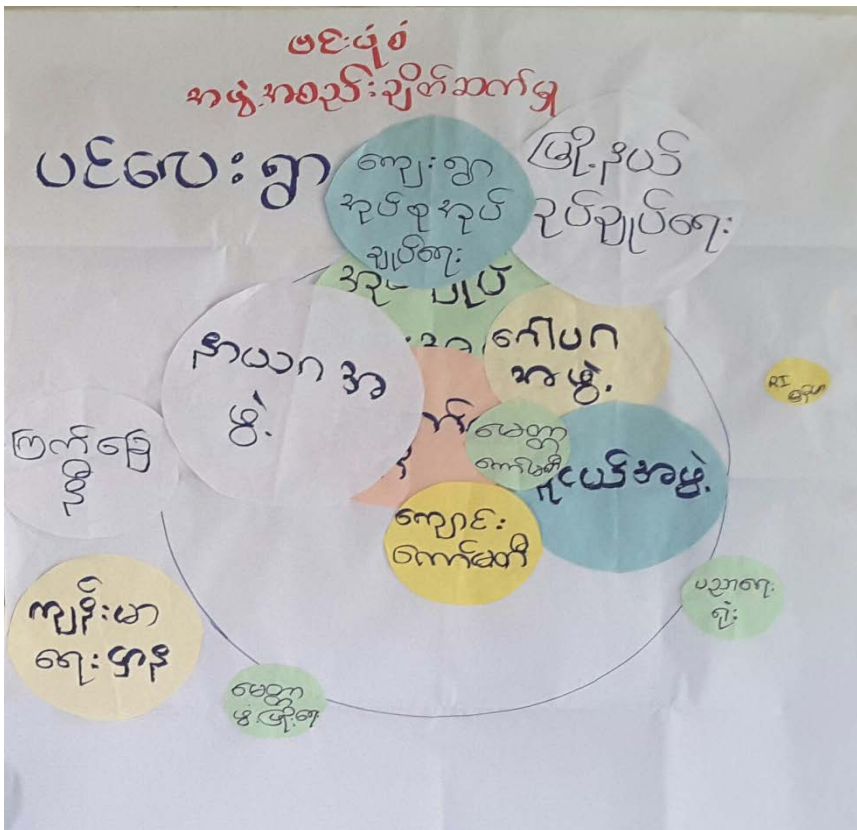 ဗင်းပုံစံ
အဖွဲ့အစည်းချိတ်ဆက်မှု
ပင်လေးရွာ
ကျေးရွာ
အုပ်စုအုပ်
ချုပ်ရေး
မြို့နယ်
အုပ်ချုပ်ရေး
နာယကအ
ဖွဲ့
ဂေါပက
အဖွဲ့
RI
မေတ္တာ
ကော်မတီ
ငယ်အဖွဲ့
ကြက်ခြေ
နီ
ကျောင်း
ကော်မတီ
ကျန်းမာ
ရေးဌာန
ပညာရေး
ရုံး
မေတ္တာ
ဖွံ့ဖြိုးရေး